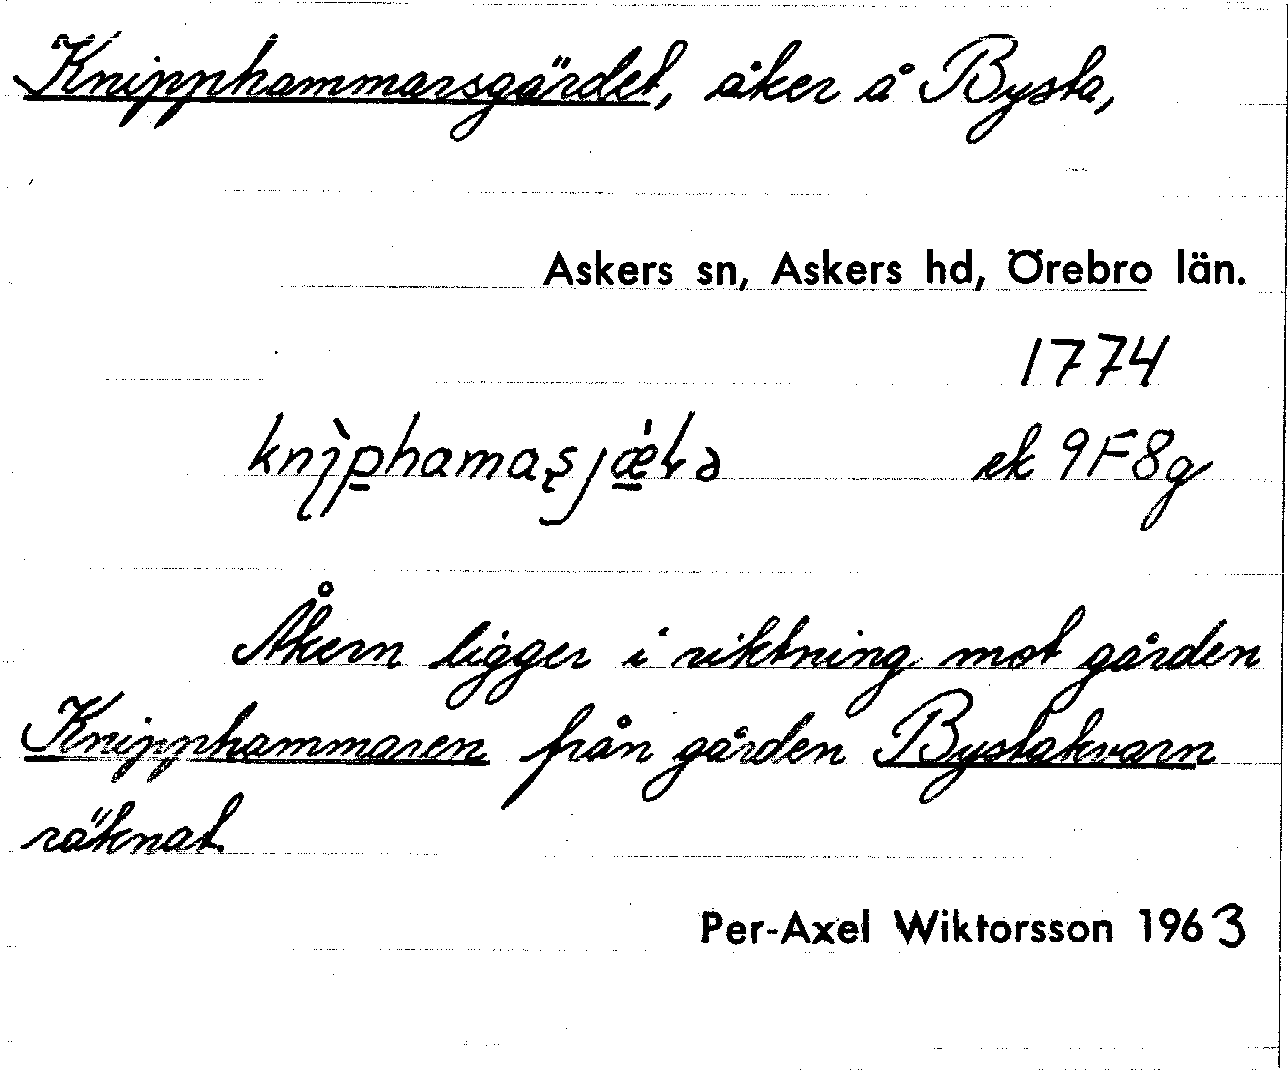 Knipphammarsgärdet, åker å Bysta,
Askers sn, Askers hd, Örebro län.
1774
ek 9F8g
Åkern ligger i riktning mot gården
Knipphammaren från gården Bystakvarn
räknat.
Per-Axel Wiktorsson 1963